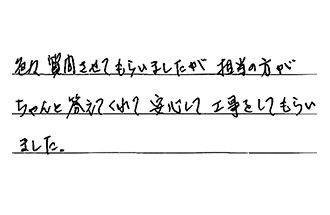 色々 質問させてもらいましたが 担当の方が
ちゃんと答えてくれて 安心して 工事をしてもらい
ました。